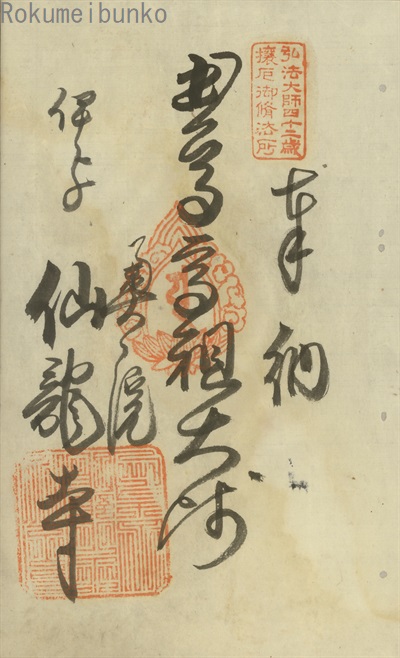 Rokumeibunko
弘法大師四十二歳
攘厄御脩法所
奉納
本尊高祖大師
奥之院
伊予
仙龍寺